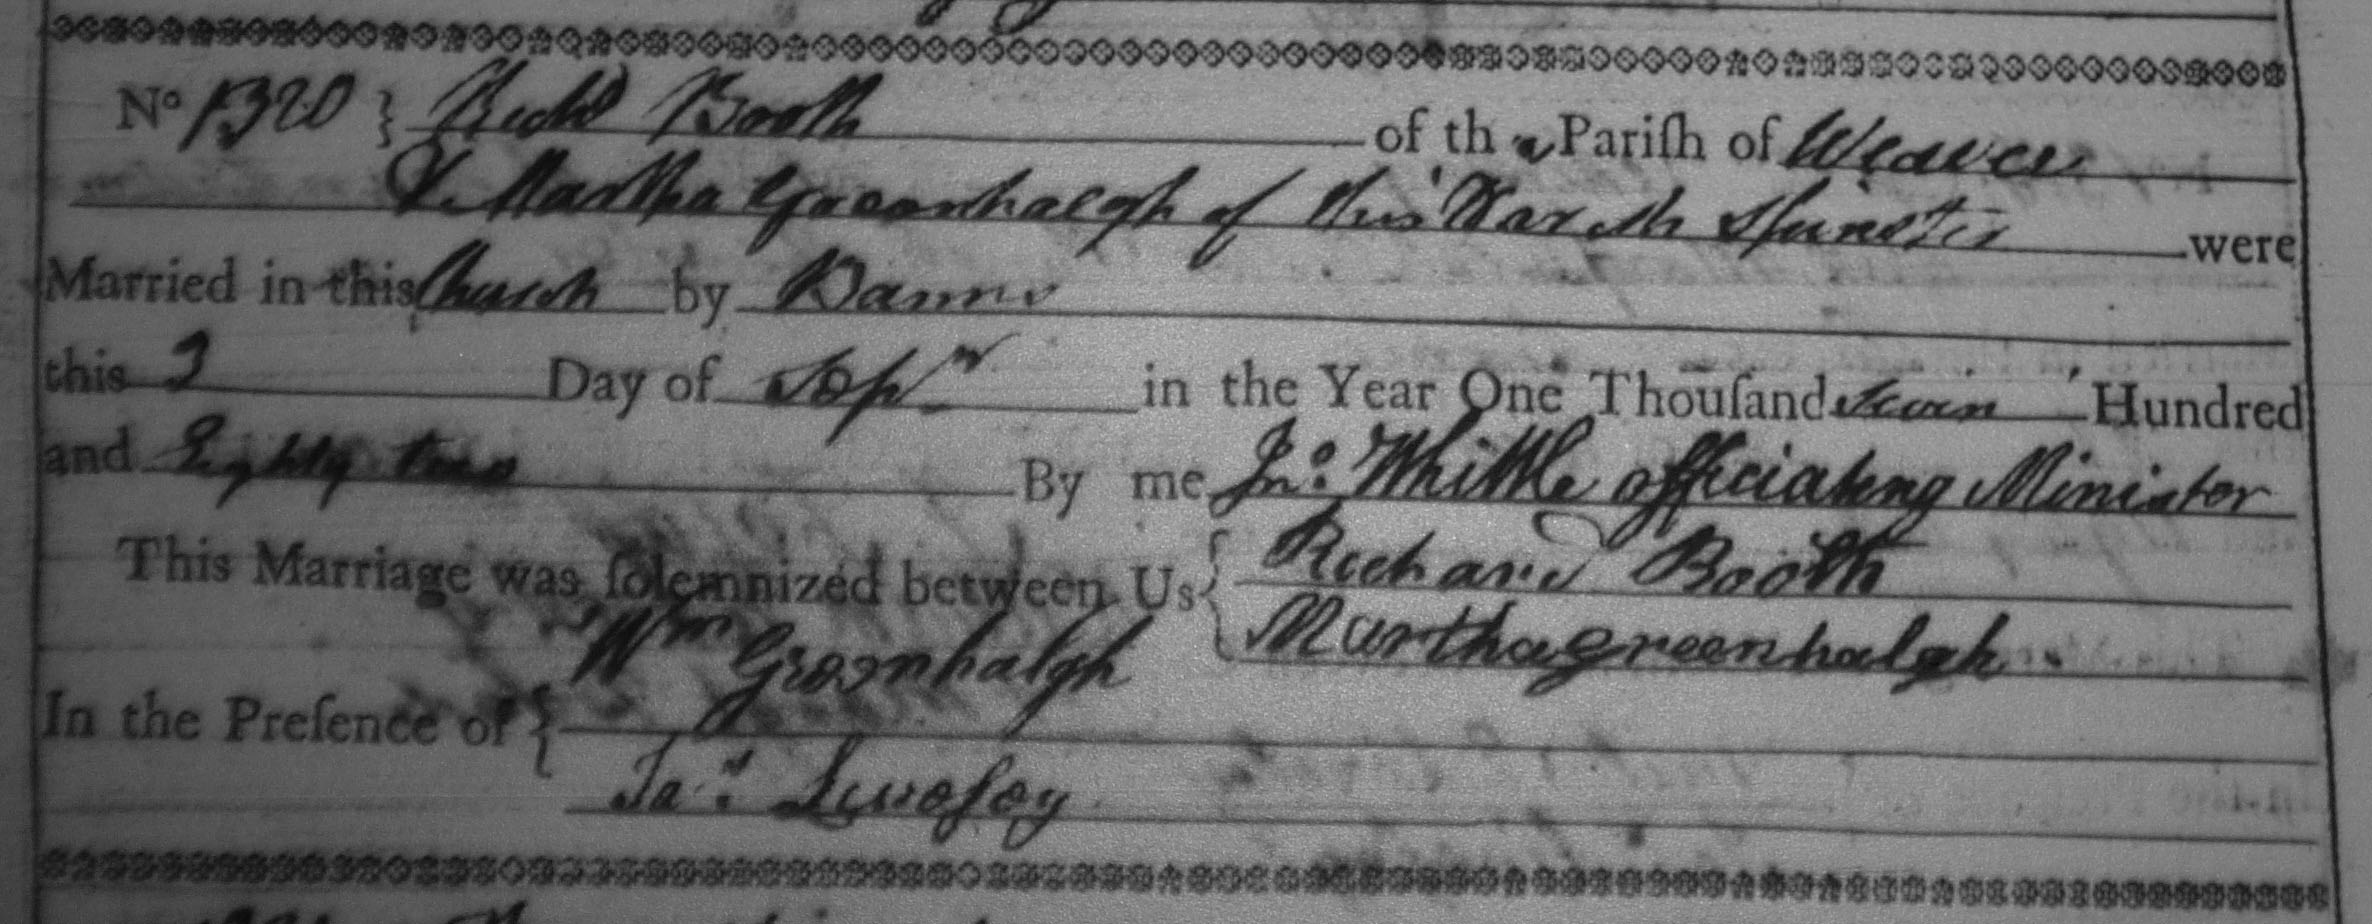 No 1320 } Richd Booth of this Pariſh of Weaver
& Martha Greenhalgh of this Parish Spinster were
Married in this Church by Banns
this 3 Day of Sepr in the Year One Thouſand Seven Hundred
and Eighty two By me Jno. Whittle officiating Minister
This Marriage was ſolemnized between Us { Richard Booth
Martha greenhalgh.
In the Preſence of { Wm Greenhalgh
Jas. Liveſey